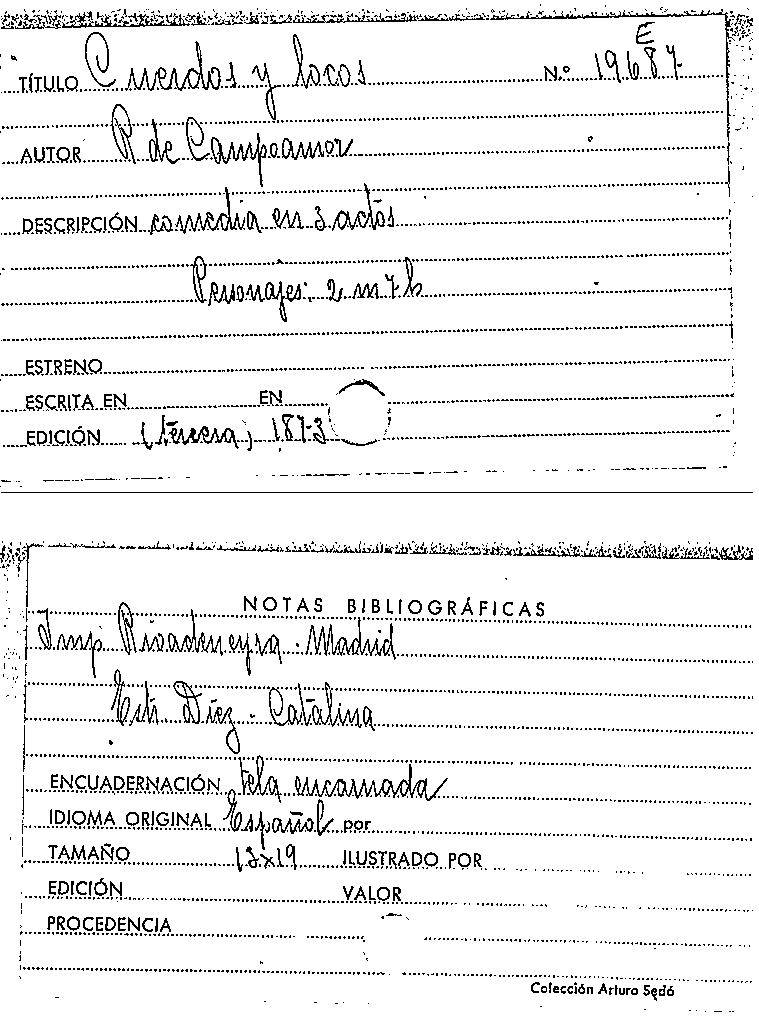 E
TÍTULO Cuerdos y locos N.º 19687
AUTOR R de Campoamor
DESCRIPCIÓN comedia en 3 actos
Personajes: 2 m 7 h
ESTRENO
ESCRITA EN EN
EDICIÓN (tercera) 1873
NOTAS BIBLIOGRÁFICAS
Imp Rivadeneyra - Madrid
Estr. Díez - Catalina
ENCUADERNACIÓN tela encarnada
IDIOMA ORIGINAL Español por
TAMAÑO 13x19 ILUSTRADO POR
EDICIÓN VALOR
PROCEDENCIA
Colección Arturo Sedó